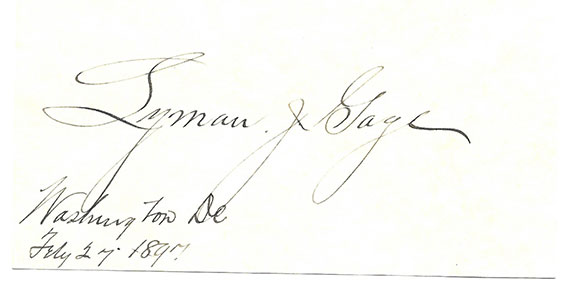 Lyman. J Gage
Washington DC
Feby 27 1897